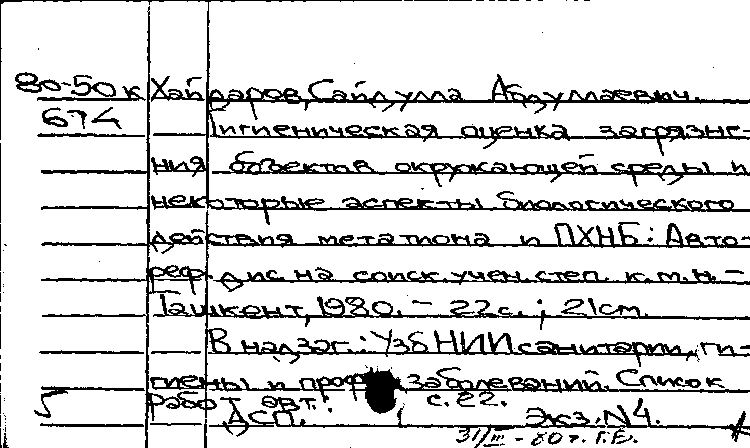 80-50к Хайдаров, Сайдулла Абдуллаевич.
674 Гигиеническая оценка загрязне-
ния объектов окружающей среды и
некоторые аспекты биологического
действия метатиона и ПХНБ: Авто-
реф. дис на соиск. учен. степ. к.м.н. -
Ташкент, 1980. - 22с. ; 21см.
В надзаг.: УзбНИИ санитарии, ги-
гиены и проф. заболеваний. Список
5 работ авт.: с. 22.
ДСП. Экз. N4.
31/III - 80 г. Г.Е.